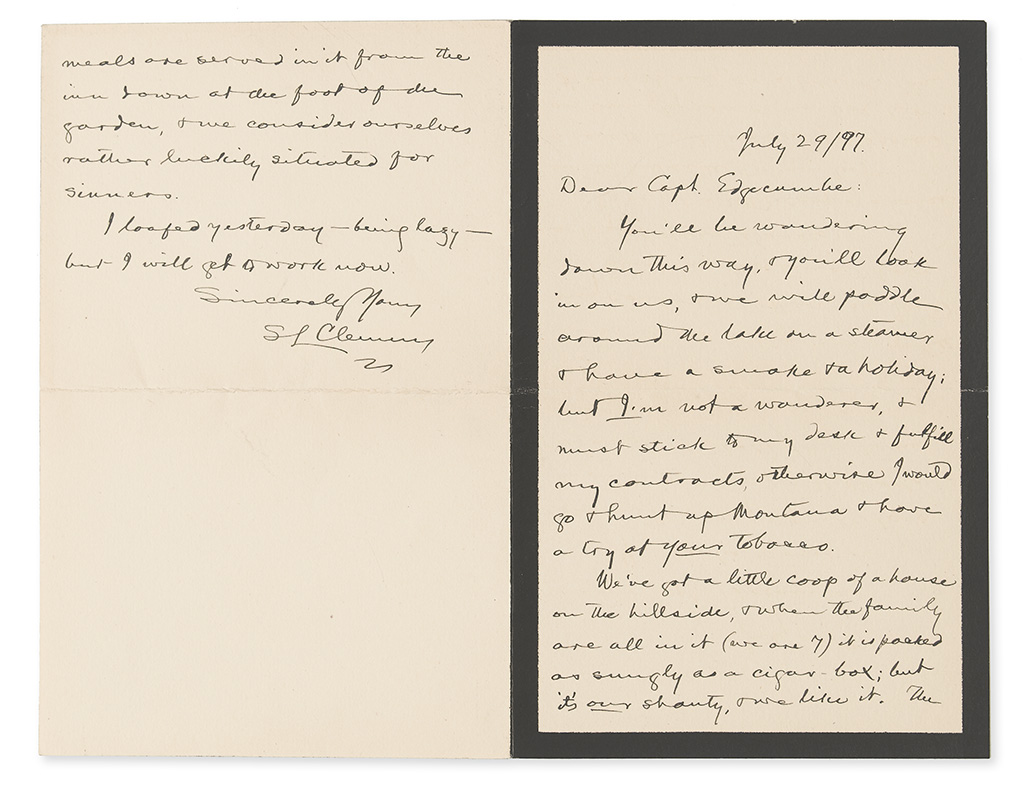 July 29/97.
Dear Capt. Edgecumbe:
You'll be wandering
down this way, & you'll look
in on us, & we will paddle
around the lake on a steamer
& have a smoke & a holiday;
but I'm not a wanderer, &
must stick to my desk & fulfill
my contracts, otherwise I would
go & hunt up Montana & have
a try at your tobacco.
We've got a little coop of a house
on the hillside, & when the family
are all in it (we are 7) it is packed
as snugly as a cigar-box; but
it's our shanty, & we like it. The
meals are served in it from the
inn down at the foot of the
garden, & we consider ourselves
rather luckily situated for
sinners.
I loafed yesterday — being lazy —
but I will get to work now.
Sincerely Yours
SL Clemens